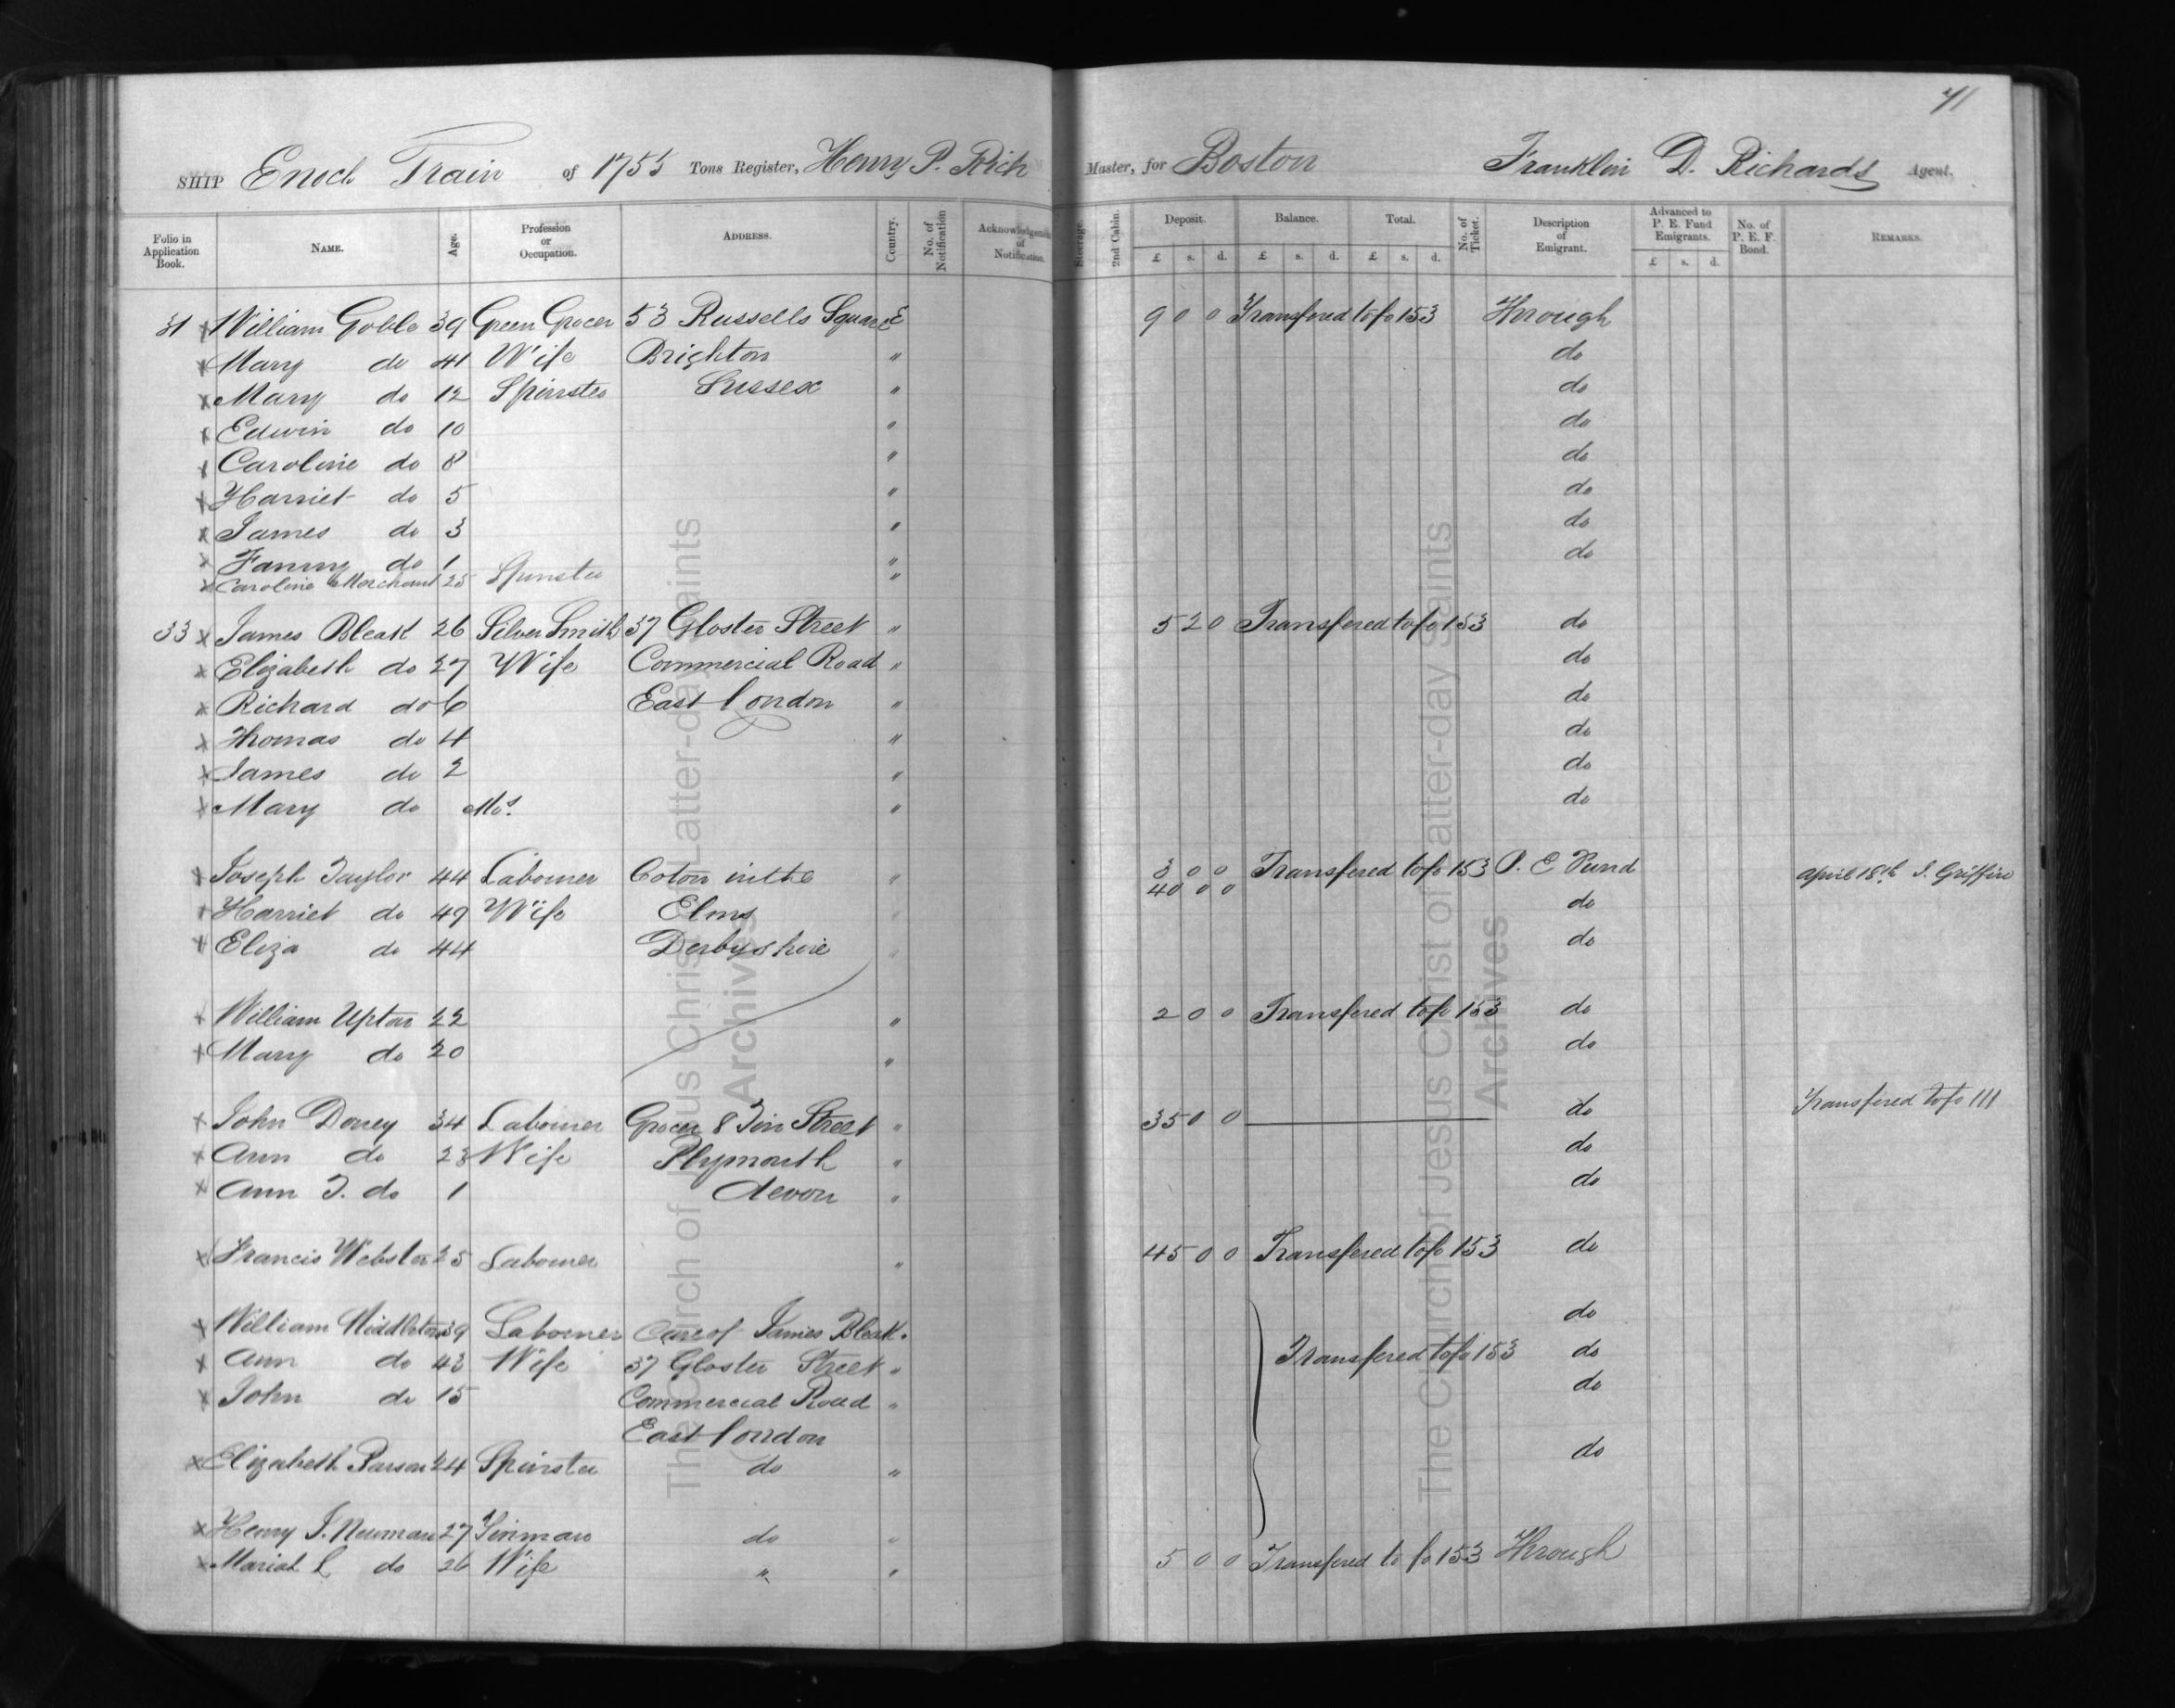 41
SHIP Enoch Train of 1755 Tons Register, Henry P. Rich Master, for Boston Franklin D. Richards Agent.
Folio in Application Book. NAME. Age. Profession or Occupation. ADDRESS. Country. No. of Notification Acknowledgement of Notification. Steerage. 2nd Cabin. Deposit. Balance. Total. No. of Ticket. Description of Emigrant. Advanced to P. E. Fund Emigrants. No. of P. E. F. Bond. REMARKS.
£ s. d. £ s. d. £ s. d. £ s. d.
31 x William Goble 39 Green Grocer 53 Russells Square E 9 0 0 Transfered to fo 153 Through
x Mary do 41 Wife Brighton " do
x Mary do 12 Spinster Sussex " do
x Edwin do 10 " do
x Caroline do 8 " do
x Harriet do 5 " do
x James do 3 " do
x Fanny do 1 " do
x Caroline Merchant 25 Spinster "
33 x James Bleak 26 Silver Smith 37 Gloster Street " 5 2 0 Transfered to fo 153 do
x Elizabeth do 27 Wife Commercial Road " do
x Richard do 6 East London " do
x Thomas do 4 " do
x James do 2 " do
x Mary do Mos. " do
x Joseph Taylor 44 Labourer Coton in the " 3 0 0 Transfered to fo 153 P. E Fund April 18th J. Griffin
40 0 0
x Harriet do 49 Wife Elms " do
x Eliza do 44 Derbyshire " do
x William Upton 22 " 2 0 0 Transfered to fo 153 do
x Mary do 20 " do
x John Doney 34 Labourer Grocer 8 Tin Street " 35 0 0 do Transfered to fo 111
x Ann do 23 Wife Plymouth " do
x Ann T. do 1 devon " do
x Francis Webster 25 Labourer " 45 0 0 Transfered to fo 153 do
x William Middleton 39 Labourer Care of James Bleak " do
x Ann do 43 Wife 37 Gloster Street " Transfered to fo 153 do
x John do 15 Commercial Road " do
East London
x Elizabeth Parson 24 Spinster do " do
x Henry J. Newman 27 Tinman do "
x Mariah L do 26 Wife " " 5 0 0 Transfered to fo 153 Through
The Church of Jesus Christ of Latter-day Saints
Archives
The Church of Jesus Christ of Latter-day Saints
Archives